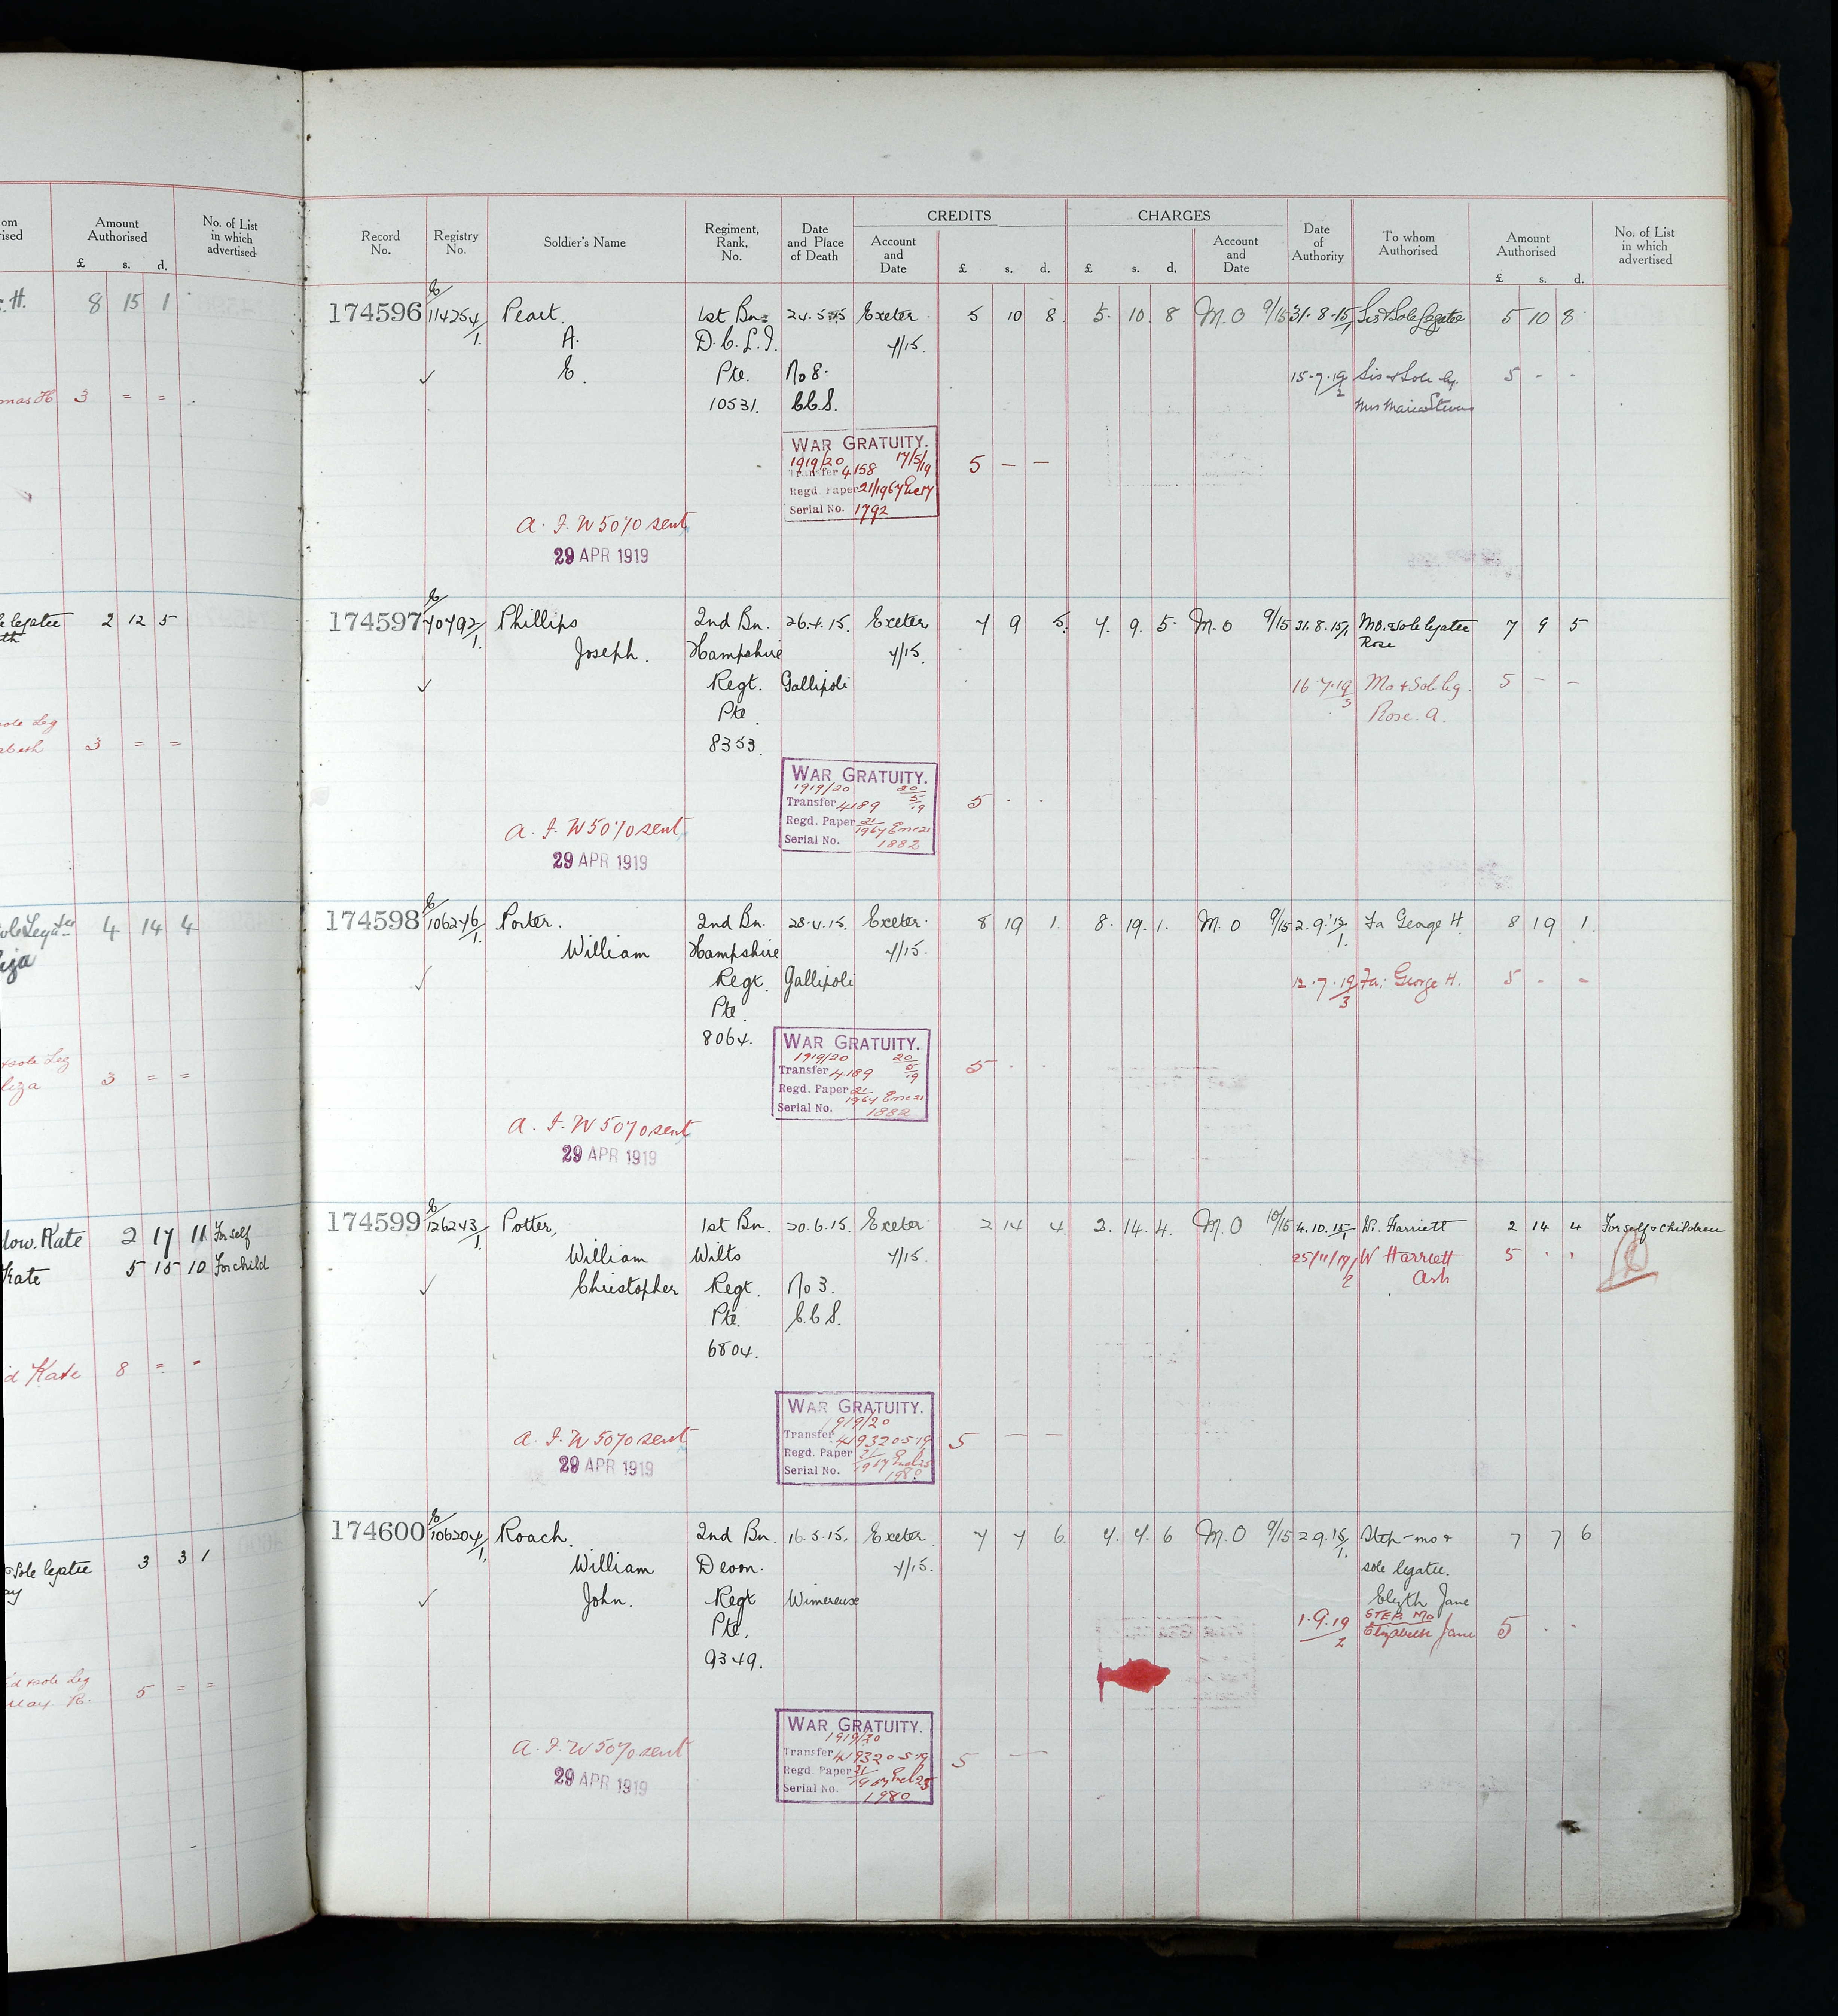 Amount Authorised
No. of List in which advertised
£ s. d.
H. 8 15 1
mas H 3 = =
legatee 2 12 5
sole Leg
abeth 3 = =
4 14 4
sole Leg
liza 3 = =
low. Kate 2 17 11 For self
Kate 5 15 10 For child
d Kate 8 = -
Sole legatee 3 3 1
ay
sole Leg
May. 5 = =
Record No.
Registry No.
Soldier's Name
Regiment, Rank, No.
Date and Place of Death
CREDITS
Account and Date
£ s. d.
CHARGES
£ s. d.
Account and Date
Date of Authority
To whom Authorised
Amount Authorised
£ s. d.
No. of List in which advertised
174596 E/114254/1 Peart. 1st Bn. 24.5.15 Exeter. 5 10 8. 5. 10. 8 M.O 9/15 31.8.15/1 Sis & Sole Legatee 5 10 8
A. D.C.L.I. 7/15.
E. Pte. No 8. 15.7.19/2 Sis & Sole Leg. 5 - -
10531. C.C.S. Mrs Maria Stevens
WAR GRATUITY.
1919/20 17/5/19
Transfer 4158
Regd. Paper 21/1967
Serial No. 1792
5 — —
A.F.W 5070 sent
29 APR 1919
174597 E/70792/1 Phillips 2nd Bn. 26.4.15. Exeter 7 9 5. 7. 9. 5. M.O 9/15 31.8.15/1 Mo. & sole legatee 7 9 5
Joseph. Hampshire 7/15. Rose
Regt. Gallipoli 16.7.19/3 Mo & Sole leg. 5 - -
Pte. Rose. A.
8353.
WAR GRATUITY.
1919/20 20/5/19
Transfer 4189
Regd. Paper 21/1967 Enc 21
Serial No. 1882
5 . .
A.F.W 5070 sent
29 APR 1919
174598 E/106276/1 Porter. 2nd Bn. 28.4.15. Exeter. 8 19 1. 8. 19. 1. M.O 9/15 2.9.15/1. Fa George H. 8 19 1.
William Hampshire 7/15.
Regt. Gallipoli 12.7.19/3 Fa: George H. 5 - -
Pte.
8064.
WAR GRATUITY.
1919/20 20/5/19
Transfer 4189
Regd. Paper 21/1967 Enc 21
Serial No. 1882
5 . .
A.F.W 5070 sent
29 APR 1919
174599 E/126243/1 Potter, 1st Bn. 20.6.15. Exeter. 2 14 4 2. 14. 4. M.O 10/15 4.10.15/1 W. Harriett 2 14 4 For self & children
William Wilts 7/15. 25/11/19/2 W Harriett 5 . .
Christopher Regt. No 3. Ash
Pte. C.C.S.
6804.
WAR GRATUITY.
1919/20
Transfer 4193 20.5.19
Regd. Paper 21/1967 Encl 25
Serial No. 1980
5 — —
A.F.W 5070 sent
29 APR 1919
174600 E/106204/1. Roach. 2nd Bn. 16.5.15. Exeter. 7 7 6 7. 7. 6 M.O 9/15 2.9.15/1. Step-mo & 7 7 6
William Devon. 7/15. sole legatee.
John. Regt Wimereux Elizth Jane
Pte. 1.9.19/2 STEP Mo Elizabeth Jane 5 . .
9349.
WAR GRATUITY.
1919/20
Transfer 4193 20.5.19
Regd. Paper 21/1967 Encl 25
Serial No. 1980
5 —
A.F.W 5070 sent
29 APR 1919